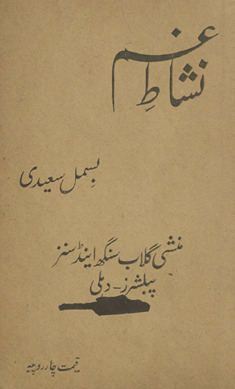 نشاطِ غم
بسمل سعیدی
منشی گلاب سنگھ اینڈ سنز
پبلشرز - دہلی
قیمت چار روپیہ